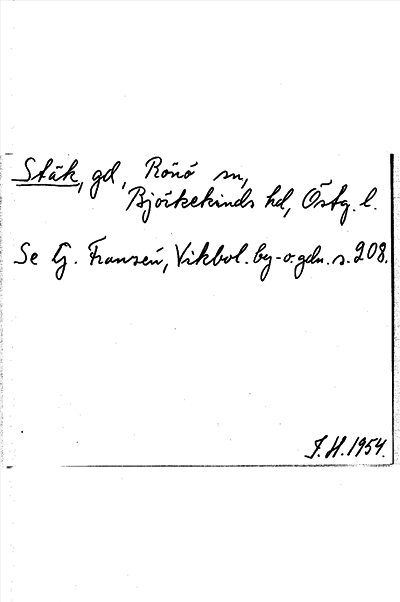 Stäk, gd, Rönö sn,
Björkekinds hd, Östg. l.
Se G. Franzén, Vikbol. by- o. gdn. s. 208.
J. H. 1954.